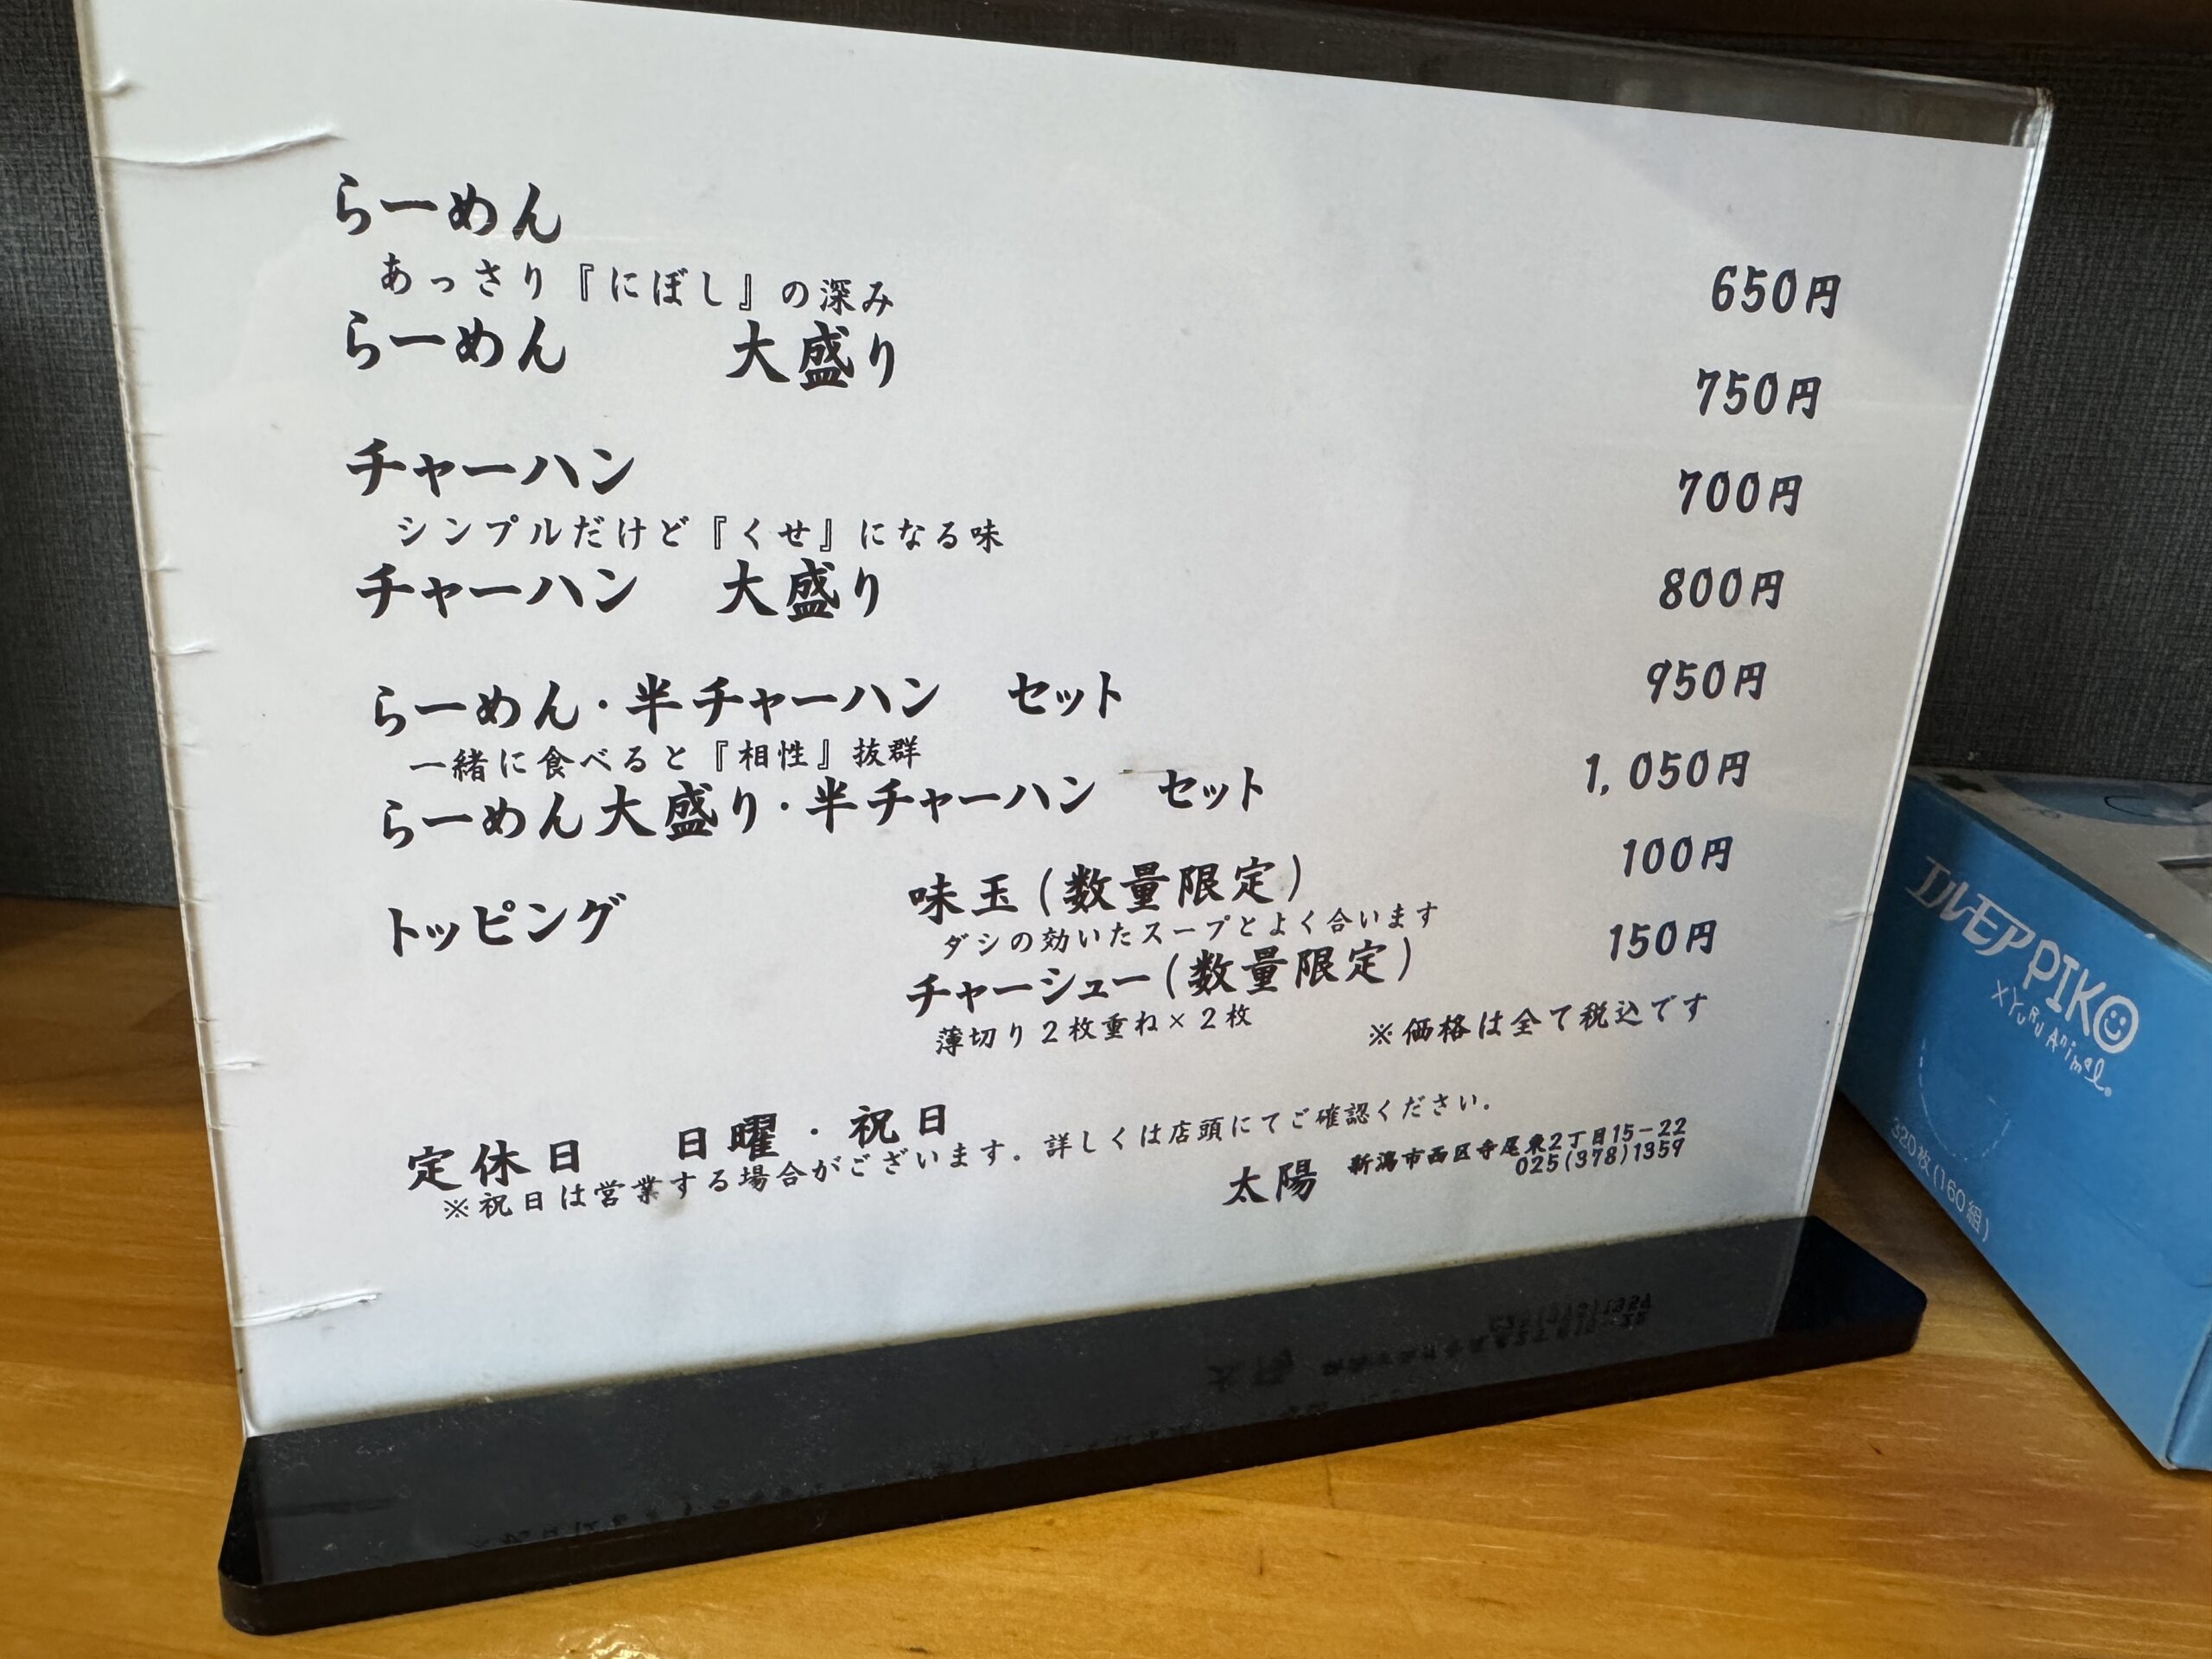 らーめん 650円
あっさり『にぼし』の深み
らーめん 大盛り 750円
チャーハン 700円
シンプルだけど『くせ』になる味
チャーハン 大盛り 800円
らーめん・半チャーハン セット 950円
一緒に食べると『相性』抜群
らーめん大盛り・半チャーハン セット 1,050円
トッピング 味玉(数量限定) 100円
ダシの効いたスープとよく合います
チャーシュー(数量限定) 150円
薄切り2枚重ね×2枚
※価格は全て税込です
定休日 日曜・祝日
※祝日は営業する場合がございます. 詳しくは店頭にてご確認ください.
太陽 新潟市西区寺尾東2丁目15-22
025(378)1359
エルモア PIKO
×YURU Animal.
320枚(160組)